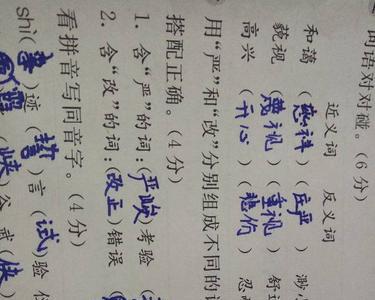 词语对对碰。(6分)
近义词 反义词
和蔼 (慈祥) (庄严) 渺小
藐视 (蔑视) (重视) 舒
高兴 (开心) (悲伤) 忍
用“严”和“改”分别组成不同的
搭配正确。(4分)
1. 含“严”的词:(严峻)考验
2. 含“改”的词:(改正)错误
看拼音写同音字。(4分)
shì(事)迹 (誓)言 (试)验
(峡)谷 武(侠